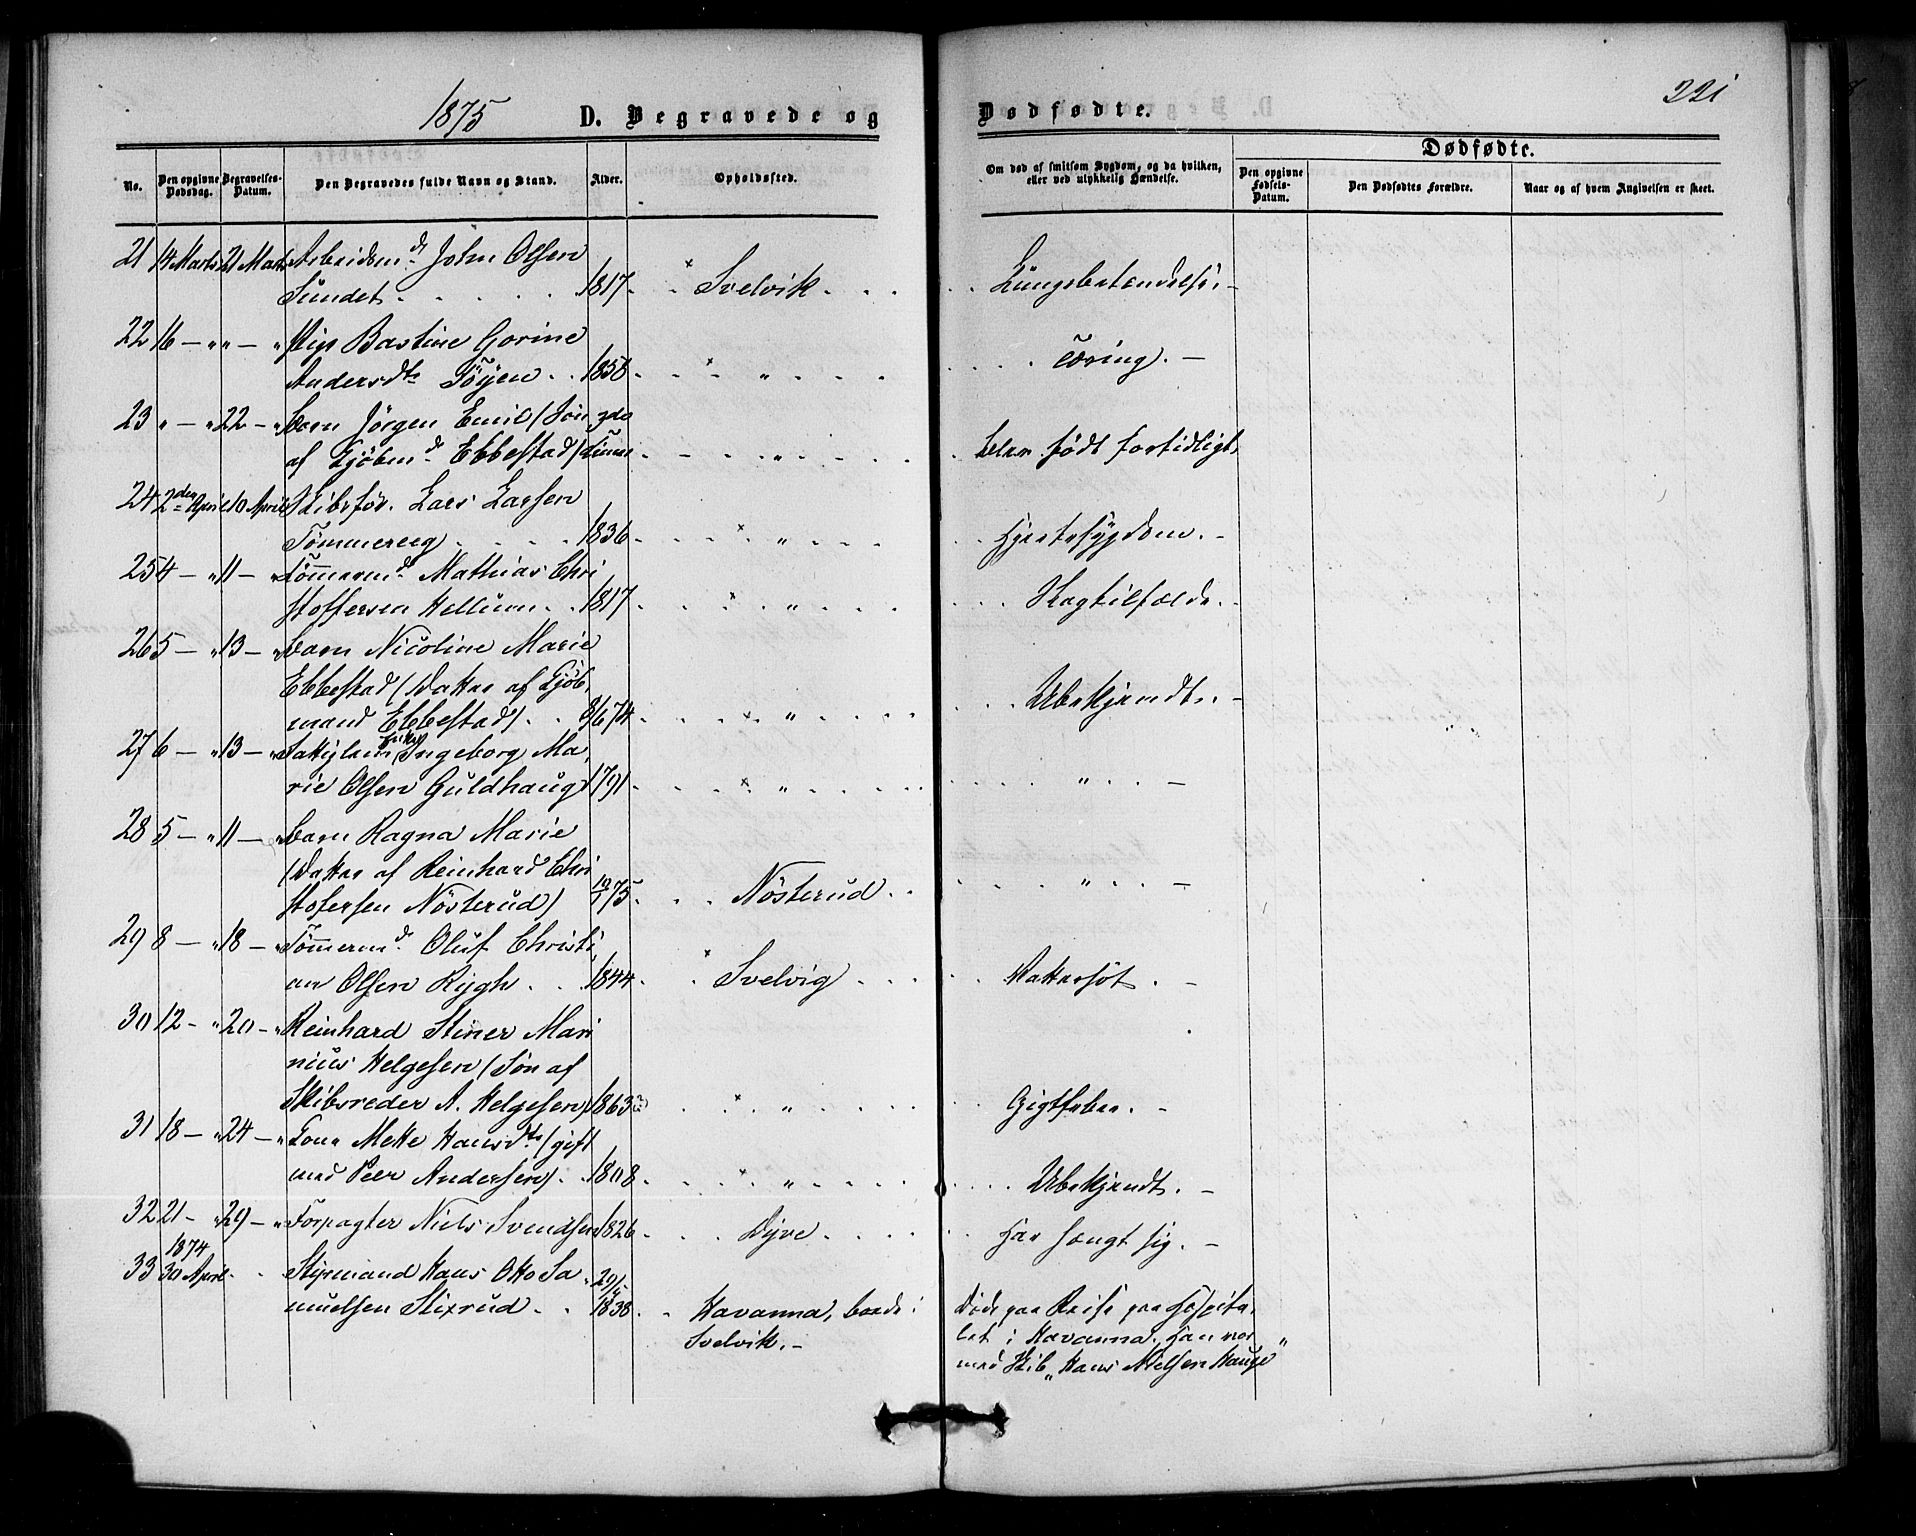 1875 D. Begravede og Dødfødte. 221
No. Den opgivne Dødsdag. Begravelses-Datum. Den Begravedes fulde Navn og Stand. Alder. Opholdssted. Om død af smitsom Sygdom, og da hvilken, eller ved ulykkelig Hændelse. Dødfødte. Den opgivne Fødsels-Datum. Den Dødfødtes Forældre. Naar og af hvem Angivelsen er skeet.
21 14 Marts 21 Marts Arbeidsmd. John Olsen
Sundet 1817 Svelvik Lungebetændelse
22 16 — " " — " Pige Bastine Gorine
Andersdtr Töyen 1858 " Tæring. —
23 " — " 22 — " Barn Jörgen Emil (Sön
af Kjöbmd. Ebbestad) Timer " blev födt fortidligt
24 2den April 10 April Skibsför. Lars Larsen
Tömmeraas 1836 " Hjertesygdom. —
25 4 — " 11 — " Tömmermd. Mathias Chri
stoffersen Hellum 1817 " Slagtilfælde. —
26 5 — " 13 — " Barn Nicoline Marie
Ebbestad (Datter af Kjöb,
mand Ebbestad) 8/6 74 " Ubekjendt. —
27 6 — " 13 — " Fattiglem Enke Ingeborg Ma,
rie Olsen Guldhaug 1791 " " —
28 5 — " 11 — " Barn Ragna Marie
(Datter af Reinhard Chri
stofersen Nösterud) 19/1 75 Nösterud " —
29 8 — " 18 — " Tömmermd. Oluf Christi,
an Olsen Rygh 1844 Svelvig Vattersot. —
30 12 — " 20 — " Reinhard Stiner Mari
nius Helgesen (Sön af
Skibsreder A. Helgesen) 1863 " Gigtfeber. —
31 18 — " 24 — " Kone Mette Hansdtr (gift
med Peer Andersen) 1808 " Ubekjendt. —
32 21 — " 29 — " Forpagter Niels Svendsen 1826 Dyve Har hængt sig. —
1874
33 30 April Styrmand Hans Otto Sa
muelsen Stixrud 29/5 1838 Havanna, boede i Döde paa Reise paa Hospita,
Svelvik. — let i Havanna. Han var
med Skib "Hans Nielsen Hauge"